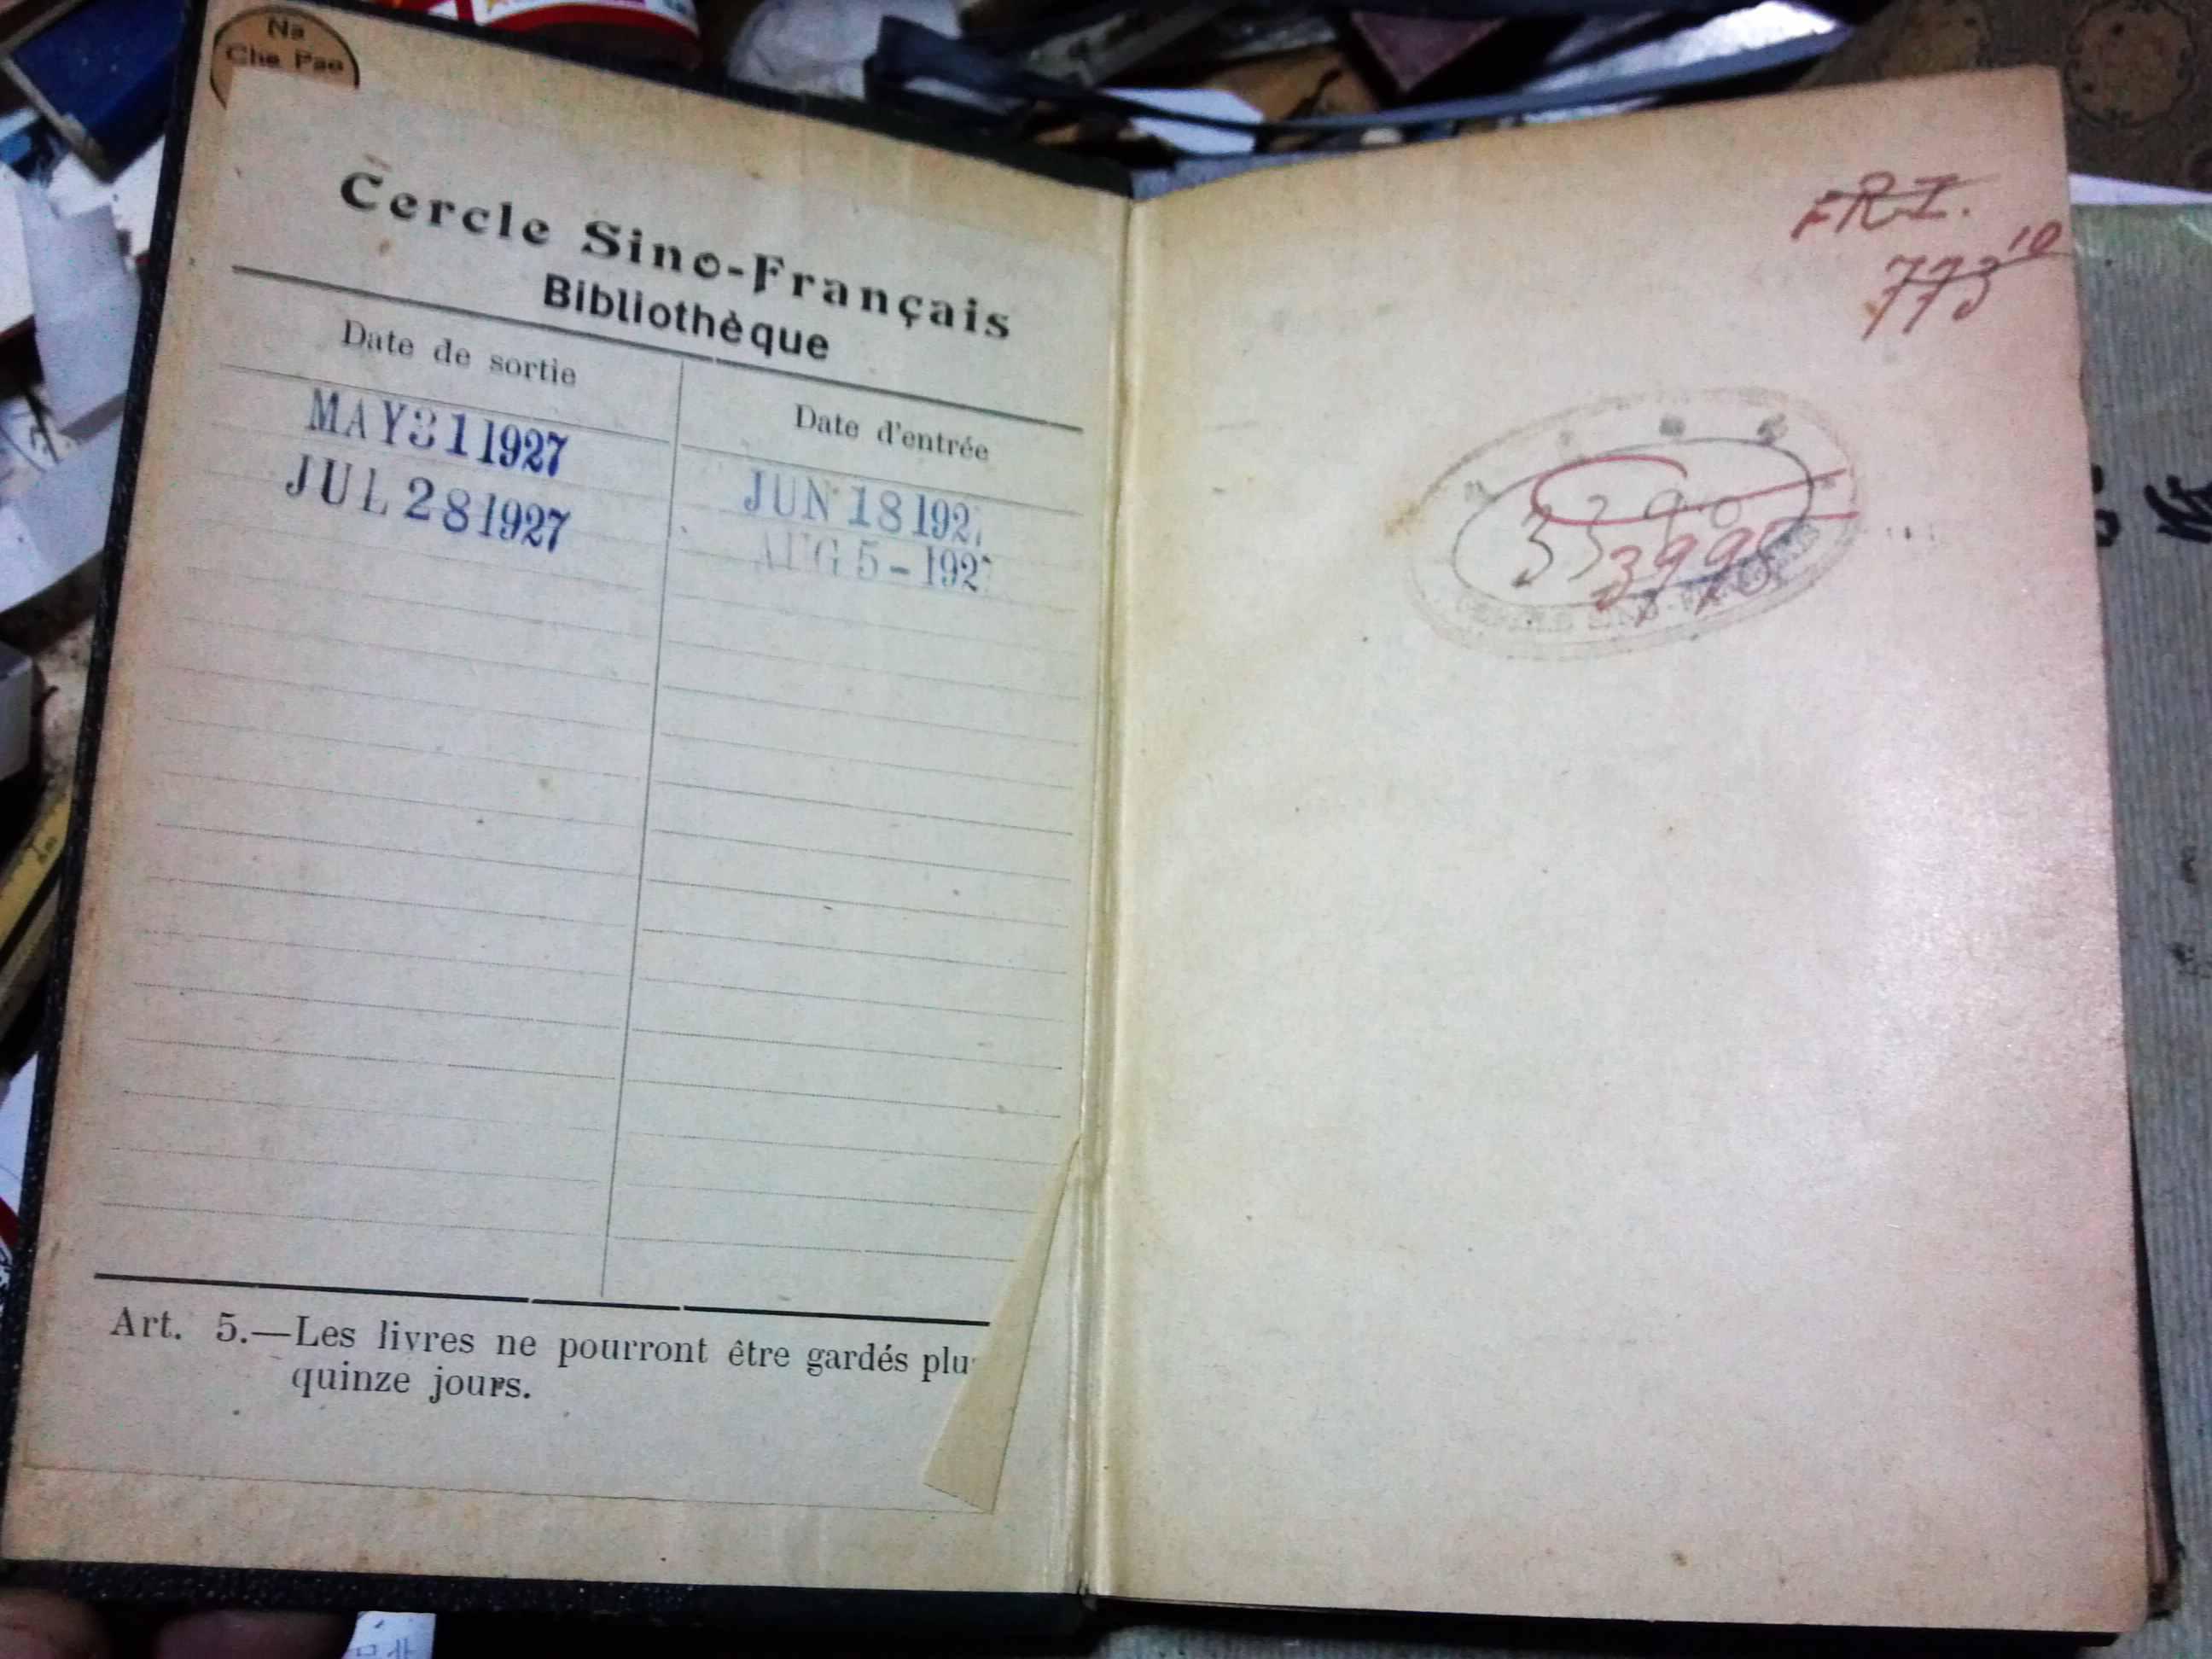 Na
Che Pao
Cercle Sino-Français
Bibliothèque
Date de sortie
Date d'entrée
MAY 31 1927
JUN 18 192
JUL 28 1927
AUG 5 - 192
Art. 5.—Les livres ne pourront être gardés plu
quinze jours.
FRI.
773 10
3390
3990